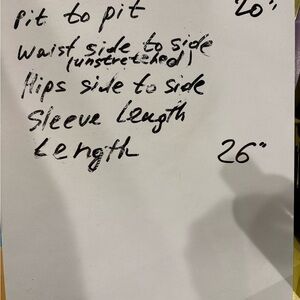 Pit to pit 20"
Waist side to side
(unstretched)
Hips side to side
Sleeve Length
Length 26"